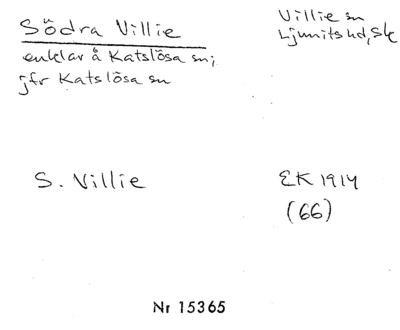 Södra Villie
enklav å Katslösa sn;
jfr Katslösa sn
Villie sn
Ljunits hd, Sk
S. Villie
EK 1914
(66)
Nr 15365